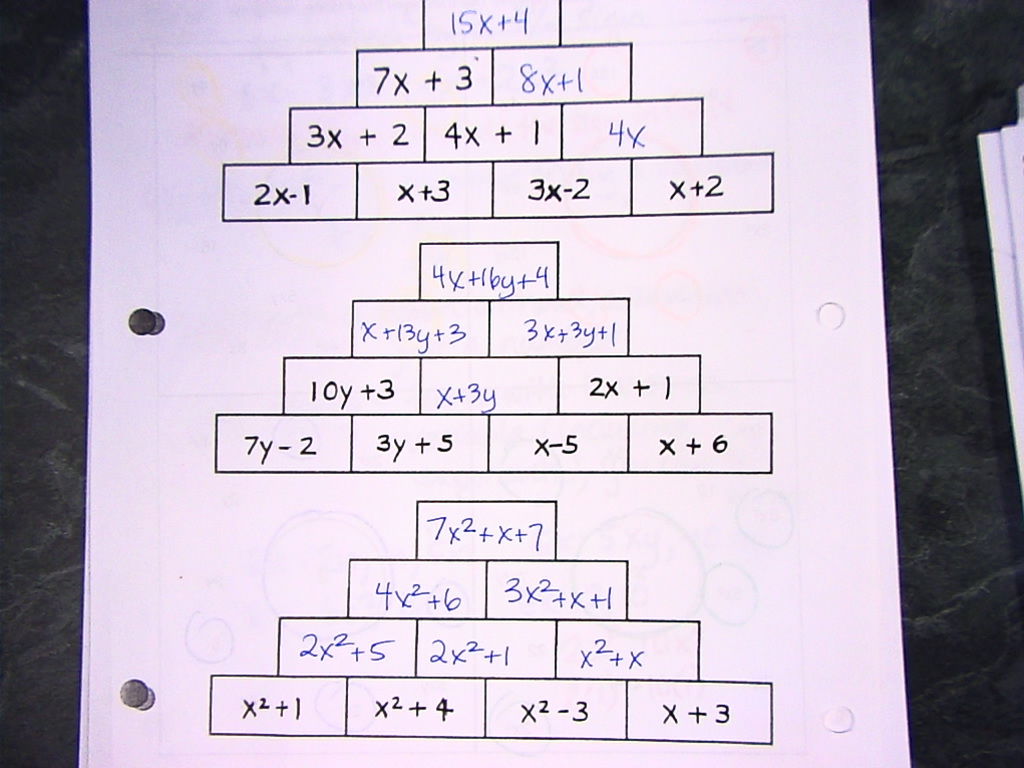 15x+4
7x + 3 8x+1
3x + 2 4x + 1 4x
2x-1 x+3 3x-2 x+2
4x+16y+4
x+13y+3 3x+3y+1
10y+3 x+3y 2x + 1
7y-2 3y+5 x-5 x + 6
7x²+x+7
4x²+6 3x²+x+1
2x²+5 2x²+1 x²+x
x²+1 x²+4 x²-3 x+3